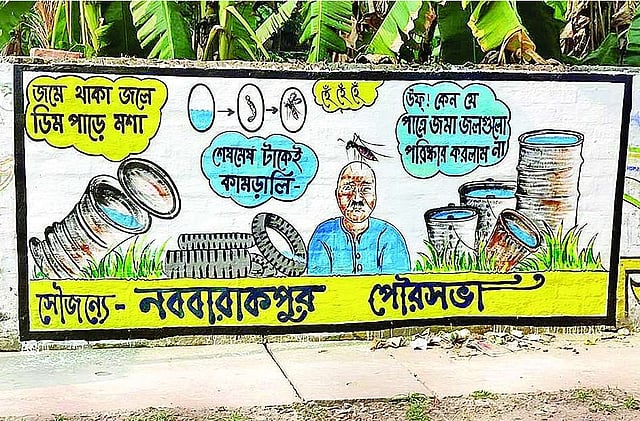 জমে থাকা জলে
ডিম পাড়ে মশা
হুঁ হুঁ হুঁ
শেষমেষ টাকেই
কামড়ালি-
উঁফ! কেন যে
পাত্রে জমা জলগুলো
পরিষ্কার করলাম না
সৌজন্যে - নববারাকপুর পৌরসভা